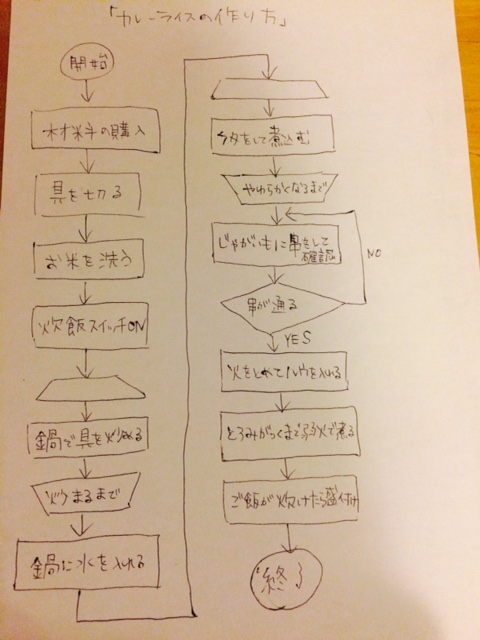 「カレーライスの作り方」
開始
材料の購入
具を切る
お米を洗う
炊飯スイッチON
鍋で具を炒める
炒まるまで
鍋に水を入れる
フタをして煮込む
やわらかくなるまで
じゃがいもに串をして
確認
串が通る
NO
YES
火をとめてルウを入れる
とろみがつくまで弱火で煮る
ご飯が炊けたら盛付け
終了